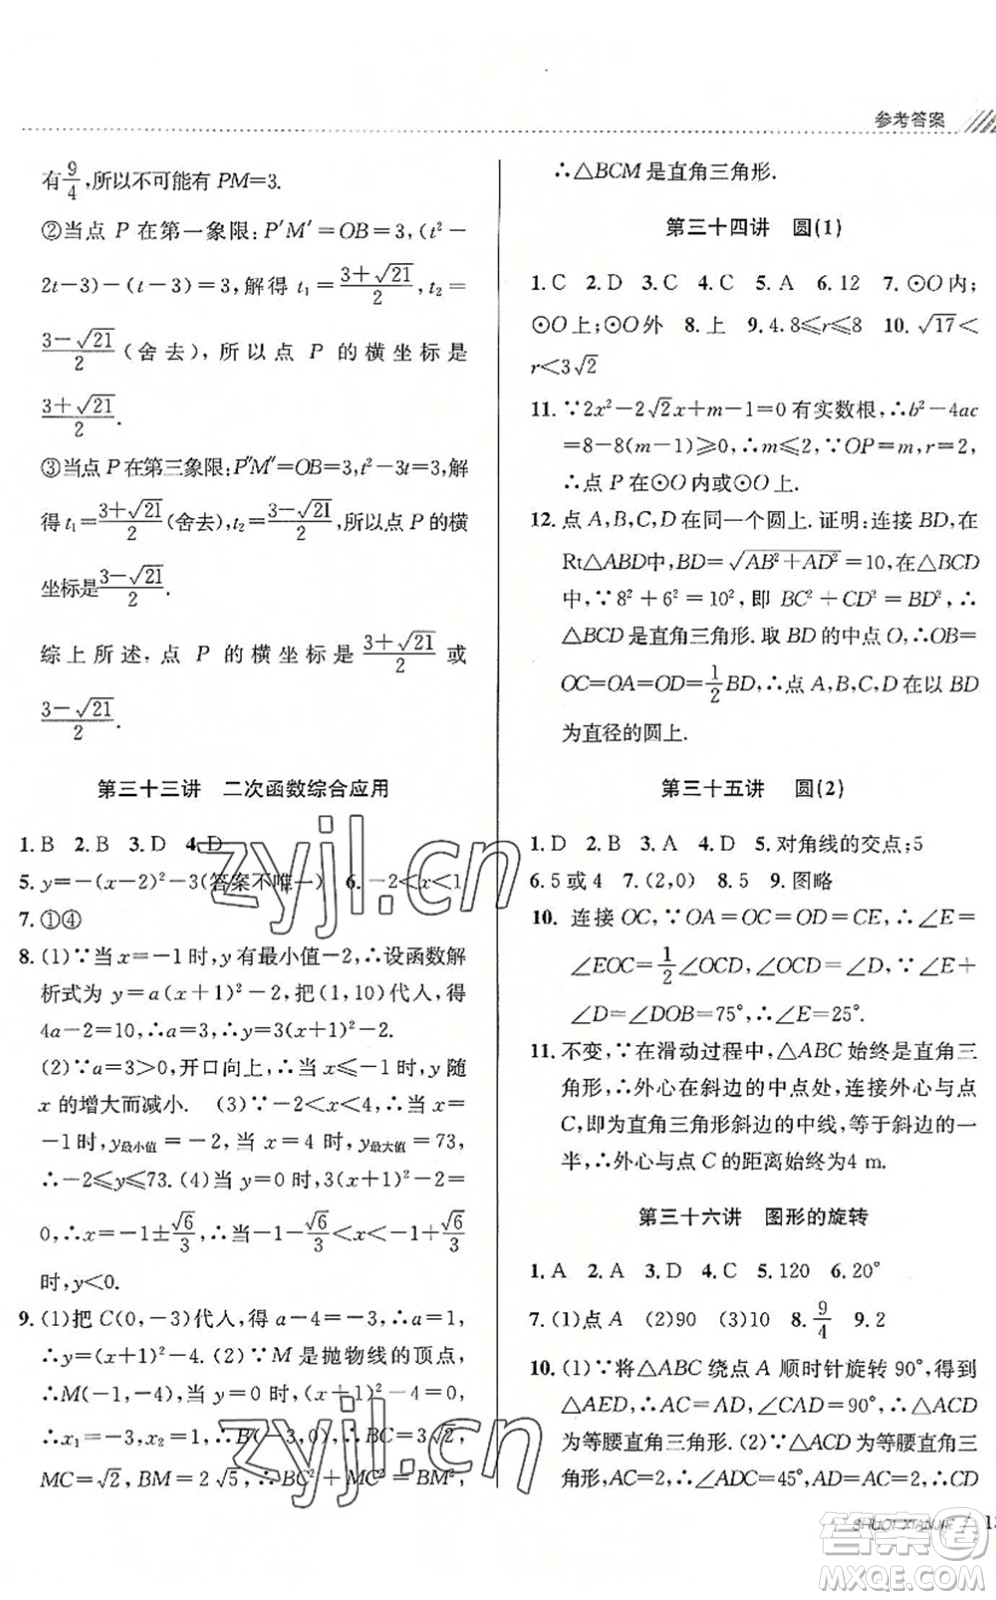 参考答案
有9/4,所以不可能有 PM=3.
②当点 P 在第一象限:P′M′=OB=3,(t²-
2t-3)-(t-3)=3,解得 t₁=(3+√21)/2,t₂=
(3-√21)/2(舍去),所以点 P 的横坐标是
(3+√21)/2.
③当点 P 在第三象限:P″M″=OB=3,t²-3t=3,解
得 t₁=(3+√21)/2(舍去),t₂=(3-√21)/2,所以点 P 的横
坐标是(3-√21)/2.
综上所述,点 P 的横坐标是(3+√21)/2或
(3-√21)/2.
第三十三讲 二次函数综合应用
1. B 2. B 3. D 4. D
5. y=-(x-2)²-3(答案不唯一) 6. -2<x<1
7. ①④
8. (1)∵当 x=-1时,y 有最小值-2,∴设函数解
析式为 y=a(x+1)²-2,把(1,10)代人,得
4a-2=10,∴a=3,∴y=3(x+1)²-2.
(2)∵a=3>0,开口向上,∴当 x≤-1时,y 随
x 的增大而减小. (3)∵-2<x<4,∴当 x=
-1时,y最小值=-2,当 x=4时,y最大值=73,
∴-2≤y≤73. (4)当 y=0时,3(x+1)²-2=
0,∴x=-1±√6/3,∴当-1-√6/3<x<-1+√6/3
时,y<0.
9. (1)把 C(0,-3)代人,得 a-4=-3,∴a=1,
∴y=(x+1)²-4. (2)∵M 是抛物线的顶点,
∴M(-1,-4),当 y=0时,(x+1)²-4=0,
∴x₁=-3,x₂=1,∴B(-3,0),∴BC=3√2,
MC=√2,BM=2√5,∴BC²+MC²=BM²,
∴△BCM 是直角三角形.
第三十四讲 圆(1)
1. C 2. D 3. C 4. C 5. A 6. 12 7. ⊙O 内;
⊙O 上;⊙O 外 8. 上 9. 4.8≤r≤8 10. √17<
r<3√2
11. ∵2x²-2√2x+m-1=0 有实数根,∴b²-4ac
=8-8(m-1)≥0,∴m≤2,∵OP=m,r=2,
∴点 P 在⊙O 内或⊙O 上.
12. 点 A,B,C,D 在同一个圆上.证明:连接 BD,在
Rt△ABD中,BD=√(AB²+AD²)=10,在△BCD
中,∵8²+6²=10²,即 BC²+CD²=BD²,∴
△BCD 是直角三角形.取 BD 的中点 O,∴OB=
OC=OA=OD=1/2BD,∴点 A,B,C,D 在以 BD
为直径的圆上.
第三十五讲 圆(2)
1. D 2. B 3. A 4. D 5. 对角线的交点;5
6. 5 或 4 7. (2,0) 8. 5 9. 图略
10. 连接 OC,∵OA=OC=OD=CE,∴∠E=
∠EOC=1/2∠OCD,∴∠OCD=∠D,∵∠E+
∠D=∠DOB=75°,∴∠E=25°.
11. 不变,∵在滑动过程中,△ABC 始终是直角三
角形,∴外心在斜边的中点处,连接外心与点
C,即为直角三角形斜边的中线,等于斜边的一
半,∴外心与点 C 的距离始终为4 m.
第三十六讲 图形的旋转
1. A 2. A 3. D 4. C 5. 120 6. 20°
7. (1)点 A (2)90 (3)10 8. 9/4 9. 2
10. (1)∵将△ABC 绕点 A 顺时针旋转 90°,得到
△AED,∴AC=AD,∠CAD=90°,∴△ACD
为等腰直角三角形. (2)∵△ACD 为等腰直角三
角形,AC=2,∴∠ADC=45°,AD=AC=2,∴CD
zyjl.cn
zyjl.cn
作业精灵
MXQE.COM